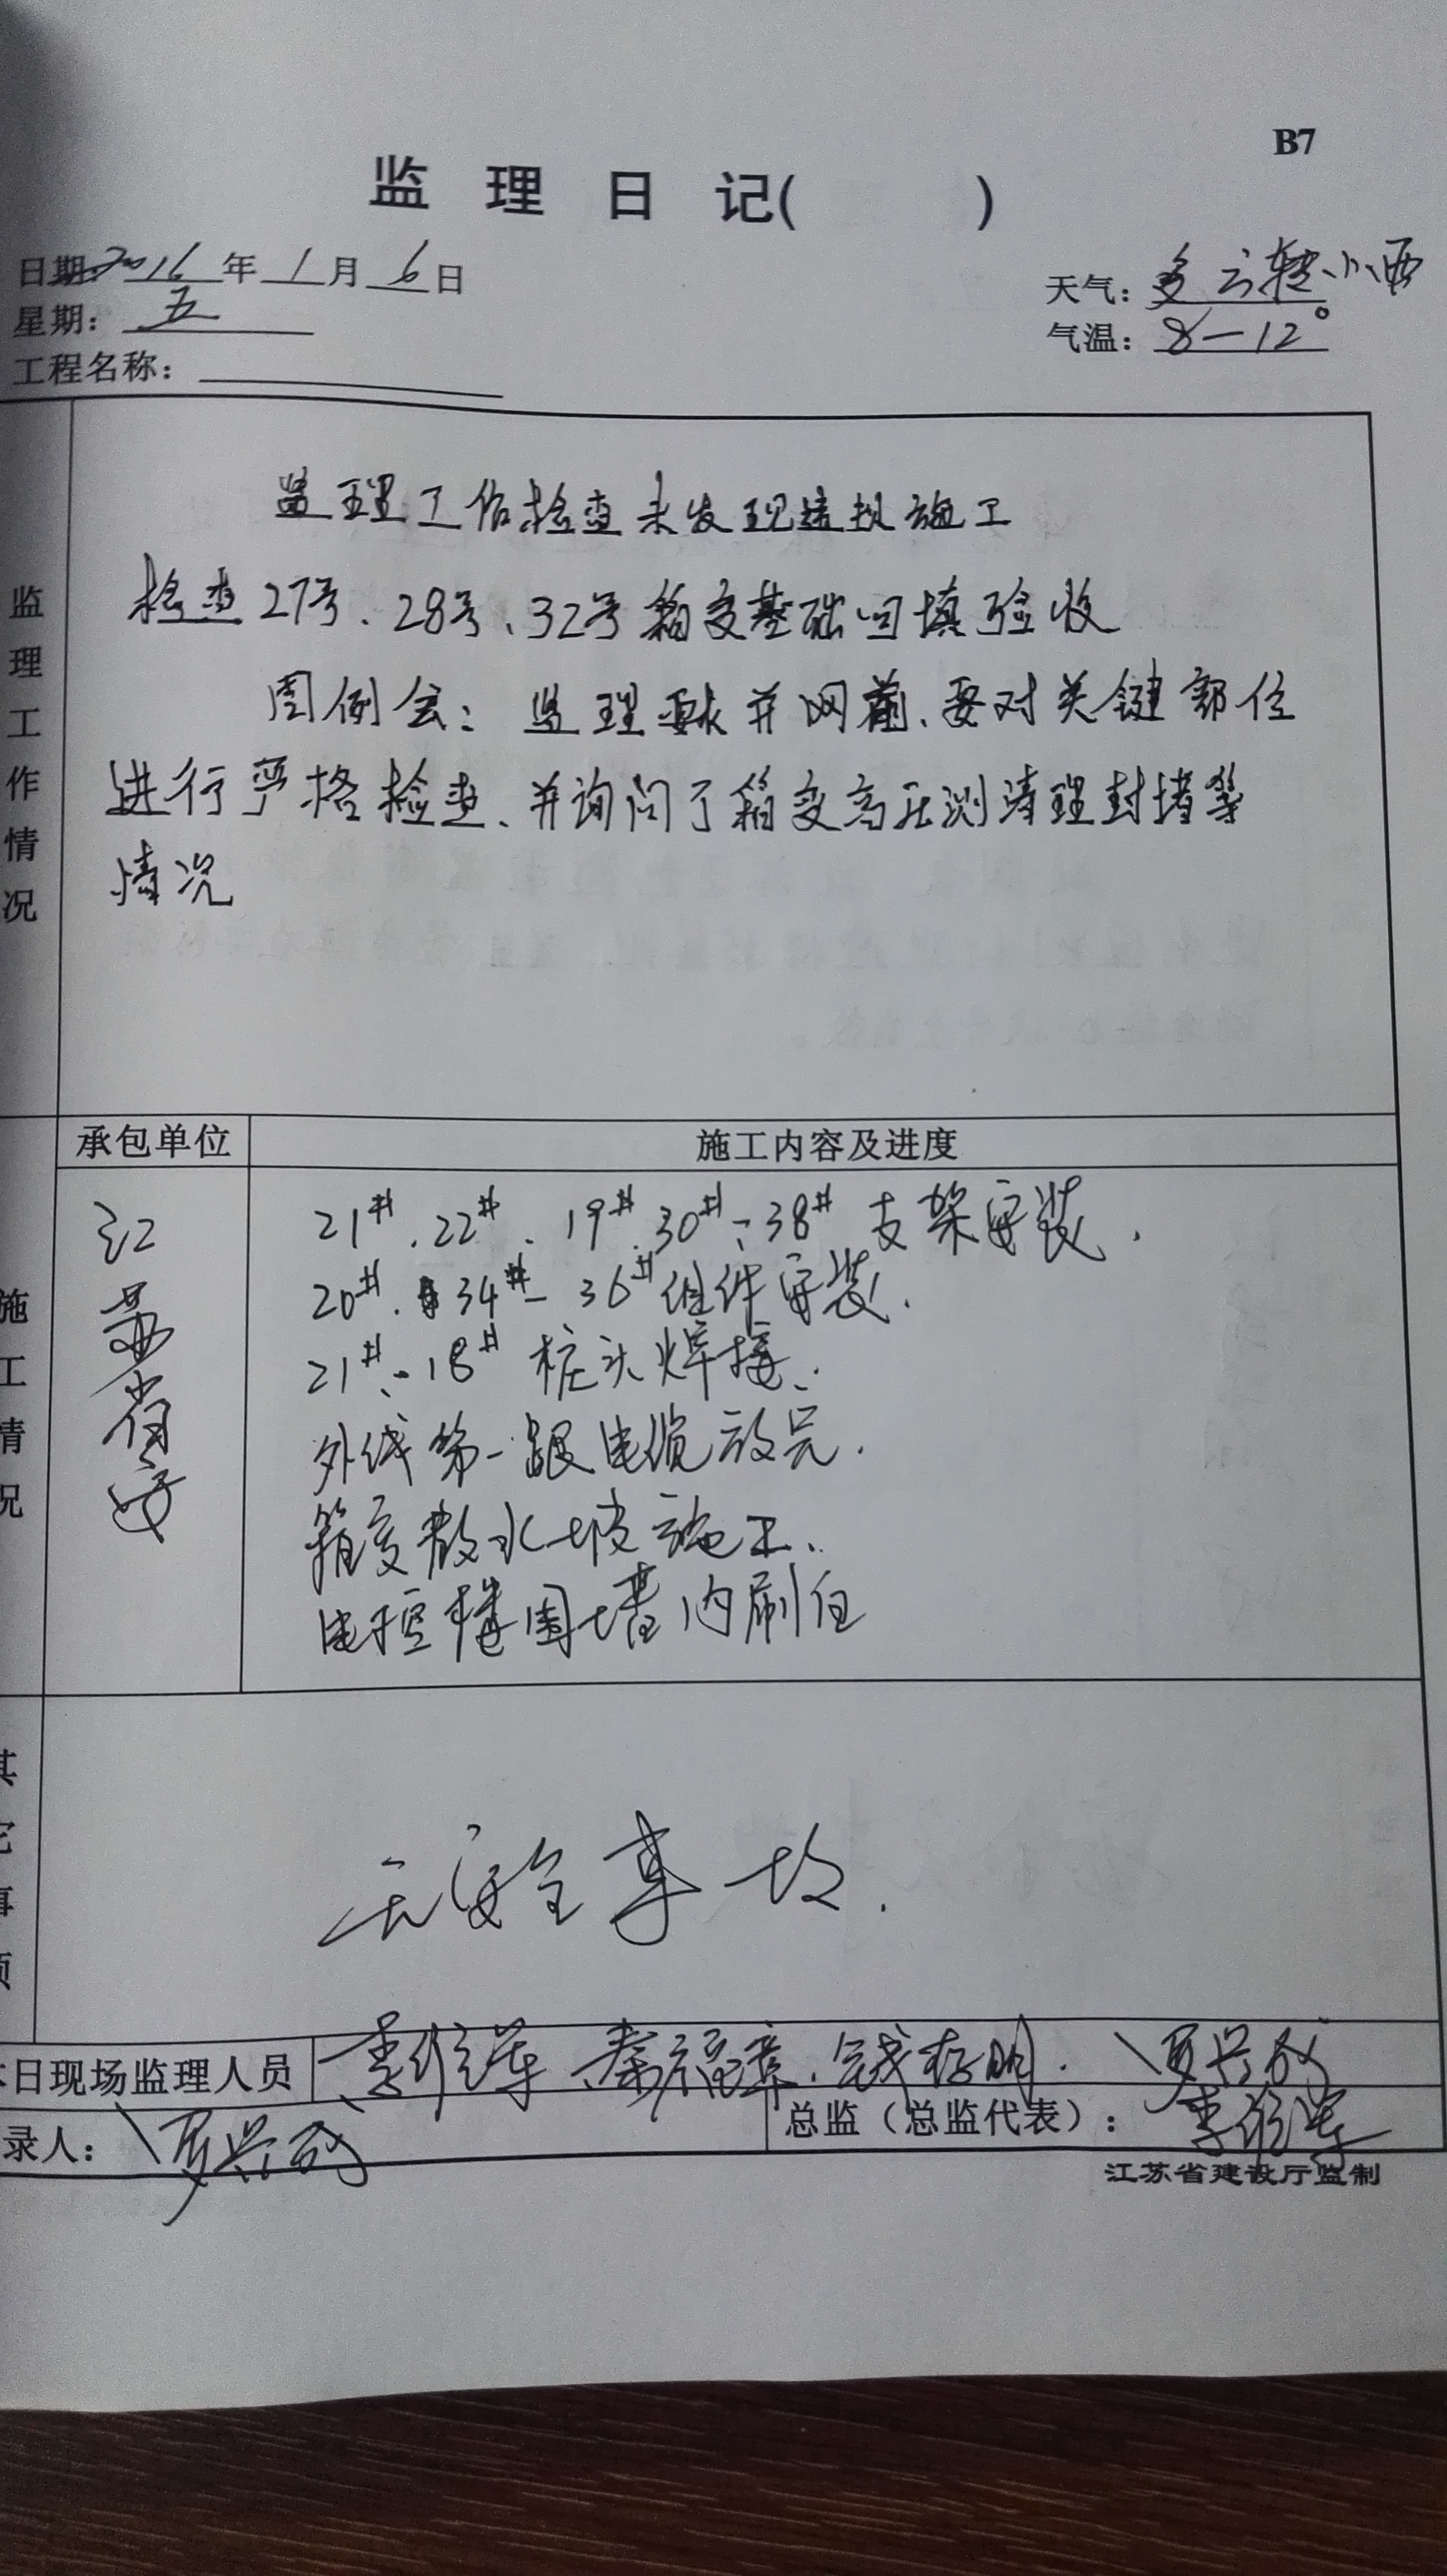 B7
监 理 日 记( )
日期: 2016 年 1 月 6 日
天气: 多云转小雨
星期: 五
气温: 8—12°
工程名称:
监理工作情况
监理工作检查未发现违规施工
检查27号、28号、32号箱变基础回填验收
周例会: 监理要求并网前、要对关键部位
进行严格检查、并询问了箱变高压测清理封堵等
情况
承包单位
施工内容及进度
施工情况
江苏省安
21#.22#、19#.30#-38#支架安装.
20#.34#-36#组件安装.
21#、-18#桩头焊接.
外线第一跟电缆放完.
箱变散水坡施工.
电控楼围墙内刷白
其它事项
无安全事故.
本日现场监理人员
钱存明.
夏兴成
录人:
夏兴成
总监(总监代表):
江苏省建设厅监制